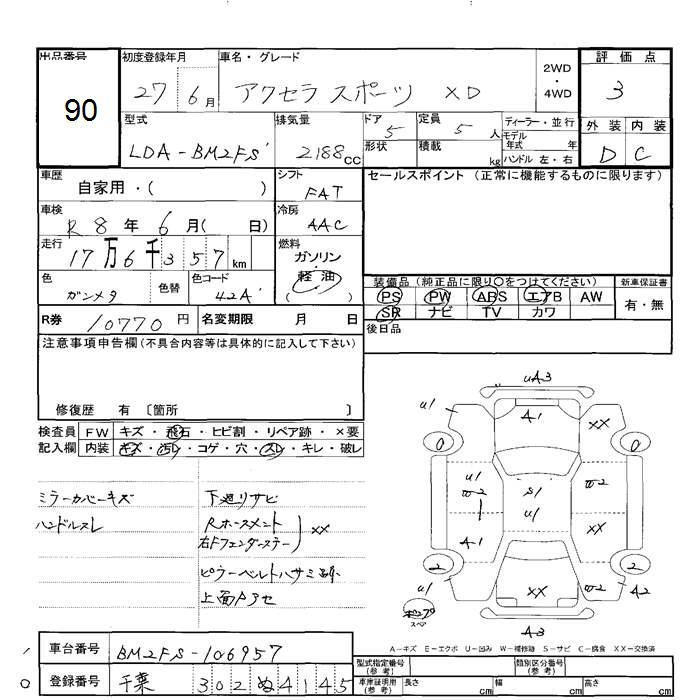 出品番号 初度登録年月 車名・グレード 2WD・4WD 評価点
90 27 6月 アクセラ スポーツ XD 3
型式 排気量 ドア 定員 ディーラー・並行 外装 内装
LDA-BM2FS 2188cc 5 5人 モデル年式 年 D C
形状 積載 kg ハンドル 左・右
車歴 シフト セールスポイント (正常に機能するものに限ります)
自家用・( ) FAT
車検 冷房
R8年 6月( 日) AAC
走行 燃料
17万6千357km ガソリン
色 色替 色コード 軽油
ガンメタ 42A ( )
装備品(純正品に限り〇をつけてください) 新車保証書
PS PW ABS エアB AW 有・無
SR ナビ TV カワ
R券 10770円 名変期限 月 日 後日品
注意事項申告欄(不具合内容等は具体的に記入して下さい)
修復歴 有 〔箇所 〕
検査員 FW キズ・飛石・ヒビ割・リペア跡・×要
記入欄 内装 キズ・汚レ・コゲ・穴・スレ・キレ・破レ
ミラーカバーキズ 下廻りサビ
ハンドルスレ Rホースメント
右Fフェンダーステー XX
ピラーベルトハサミ
上面アセ
UA3
U1 A1 XX
0 0
U1 W2 S1 U1 W2
A1 XX
2 2
U1 XX W2 A2
スペ
A3
A-キズ E-エクボ U-凹み W-補修跡 S-サビ C-腐食 XX-交換済
車台番号 BM2FS-106957
登録番号 千葉 302 ぬ 4145
型式指定番号(参考) 類別区分番号(参考)
車庫証明用(参考) 長さ cm 幅 cm 高さ cm